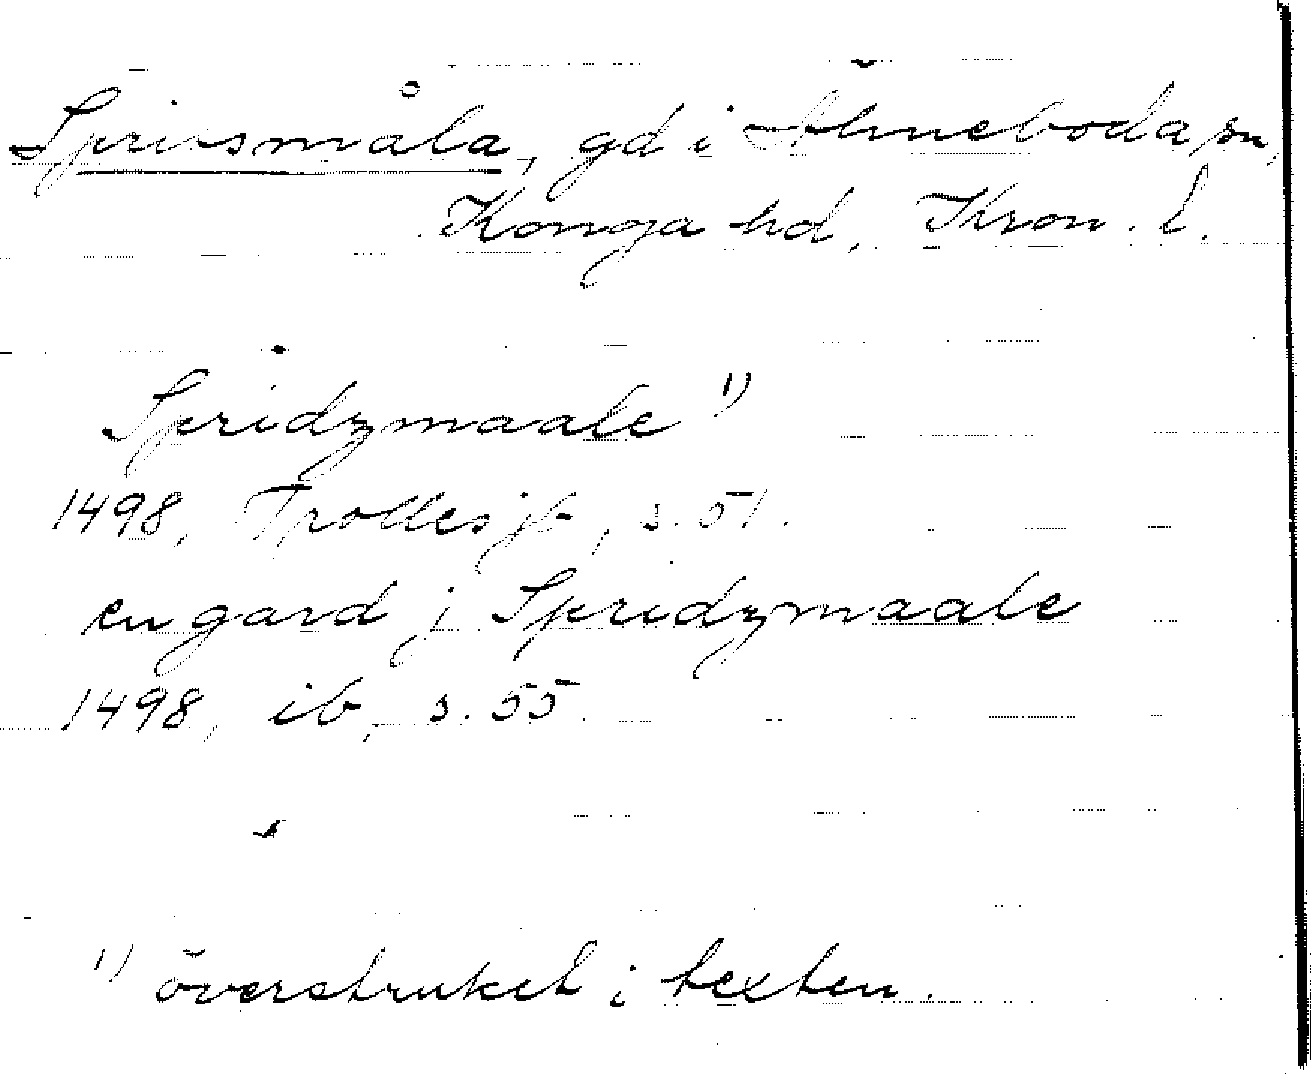 Sprissmåla, gd i Älmeboda sn,
Konga hd, Kron. l.
Spridzmaale 1)
1498, Trolles jb, s. 51.
en gard j Spridzmaale
1498, ib, s. 55
1) överstruket i texten.